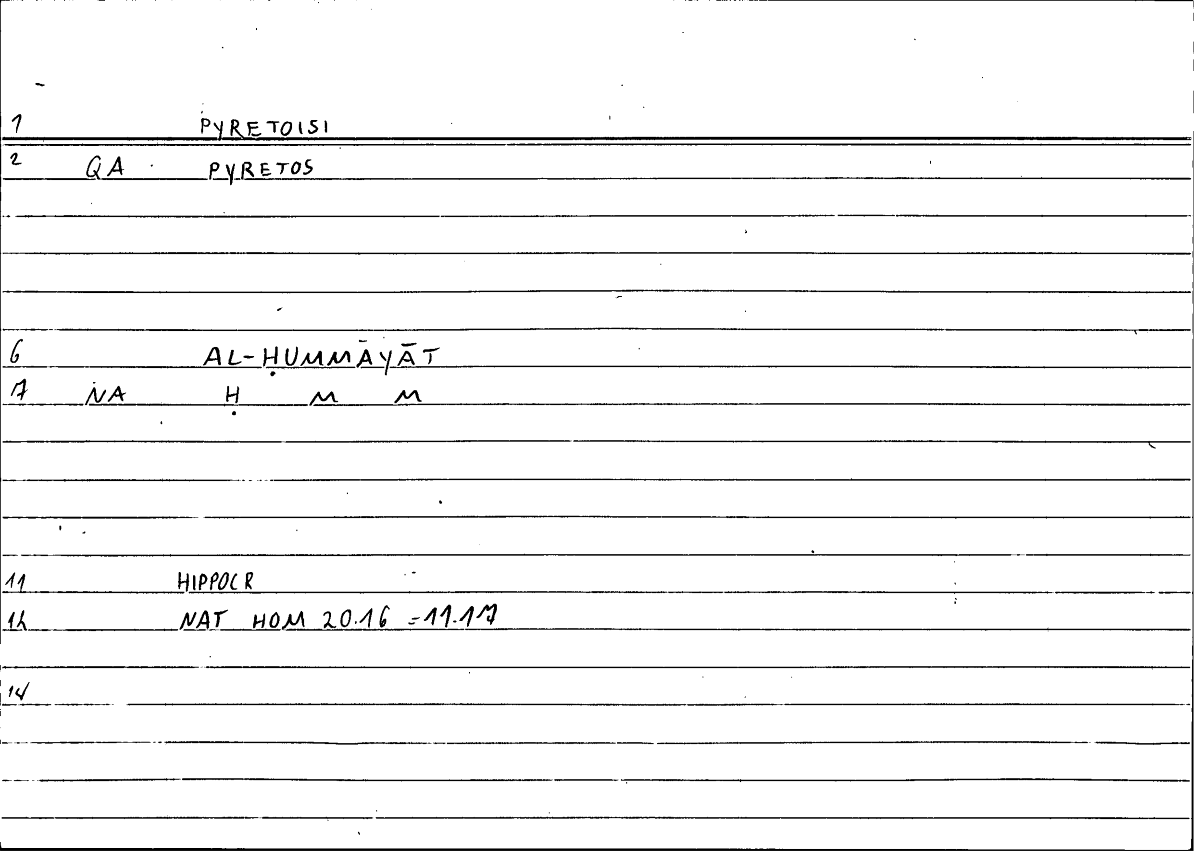 1 PYRETOISI
2 QA PYRETOS
6 AL-ḤUMMĀYĀT
7 NA Ḥ M M
11 HIPPOCR
12 NAT HOM 20.16 =11.17
14